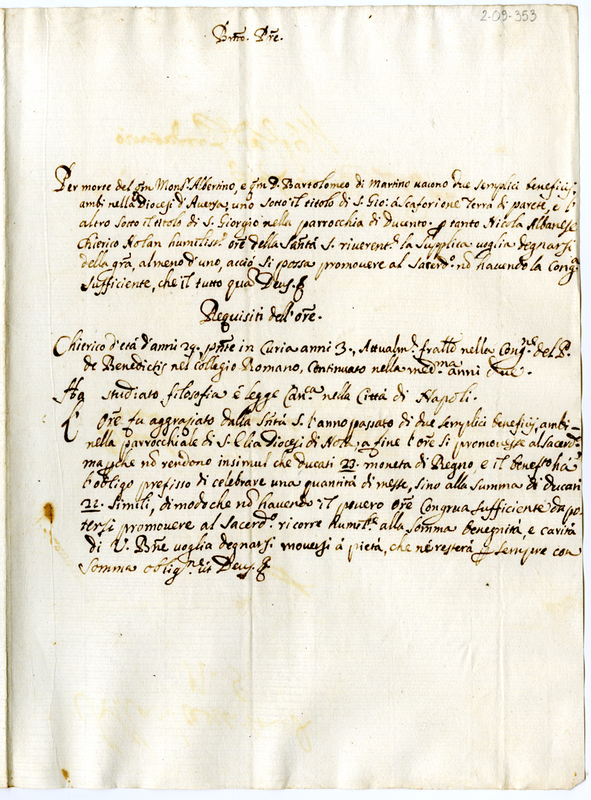 2-09-353
Bmo. Pre.
Per morte del qm Monsr. Albertino, e qm D. Bartolomeo di Martino vacono due semplici beneficij,
ambi nella Diocesi d'Aversa; uno sotto il titolo di S. Gio: à Casorione Terra di Parete, e l'
altro sotto il titolo di S. Giorgio nella parrocchia di Ducento. p tanto Nicola Albanese
Chierico Nolan humiliss. ore della Santà S. riverentte. la supplica voglia degnarsi
della gra, almeno d'uno, acciò si possa promovere al Sacerdo. nò havendo la Conga
sufficiente, che il tutto qua Deus. &
Requisiti dell'ore.
Chierico d'età d'anni 29. pnte in Curia anni 3., Attualmte. fratllo nella Congne. del P.
de Benedictis nel Collegio Romano, continuato nella medma. anni due.
Ha studiato filosofia e legge Canca. nella Città di Napoli.
L' Ore fu aggratiato dalla Sntà S. l'anno passato di due semplici beneficij, ambi
nella parrocchiale di S. Elia Diocesi di Nola a fine l'ore si promovesse al sacerdo.
ma pche nò rendono insimul che ducati 23. moneta di Regno, e il benefto hà
l'obligo prefisso di celebrare una quantità di messe, sino alla summa di ducati
21. simili, di modo che nò havendo il povero ore Congrua sufficiente da po-
tersi promovere al Sacerdo. ricorre humilte. alla somma benegnità, e carità
di V. Bne voglia degnarsi moversi à pietà, che ne resterà p sempre con
somma obligne. ut Deus. &